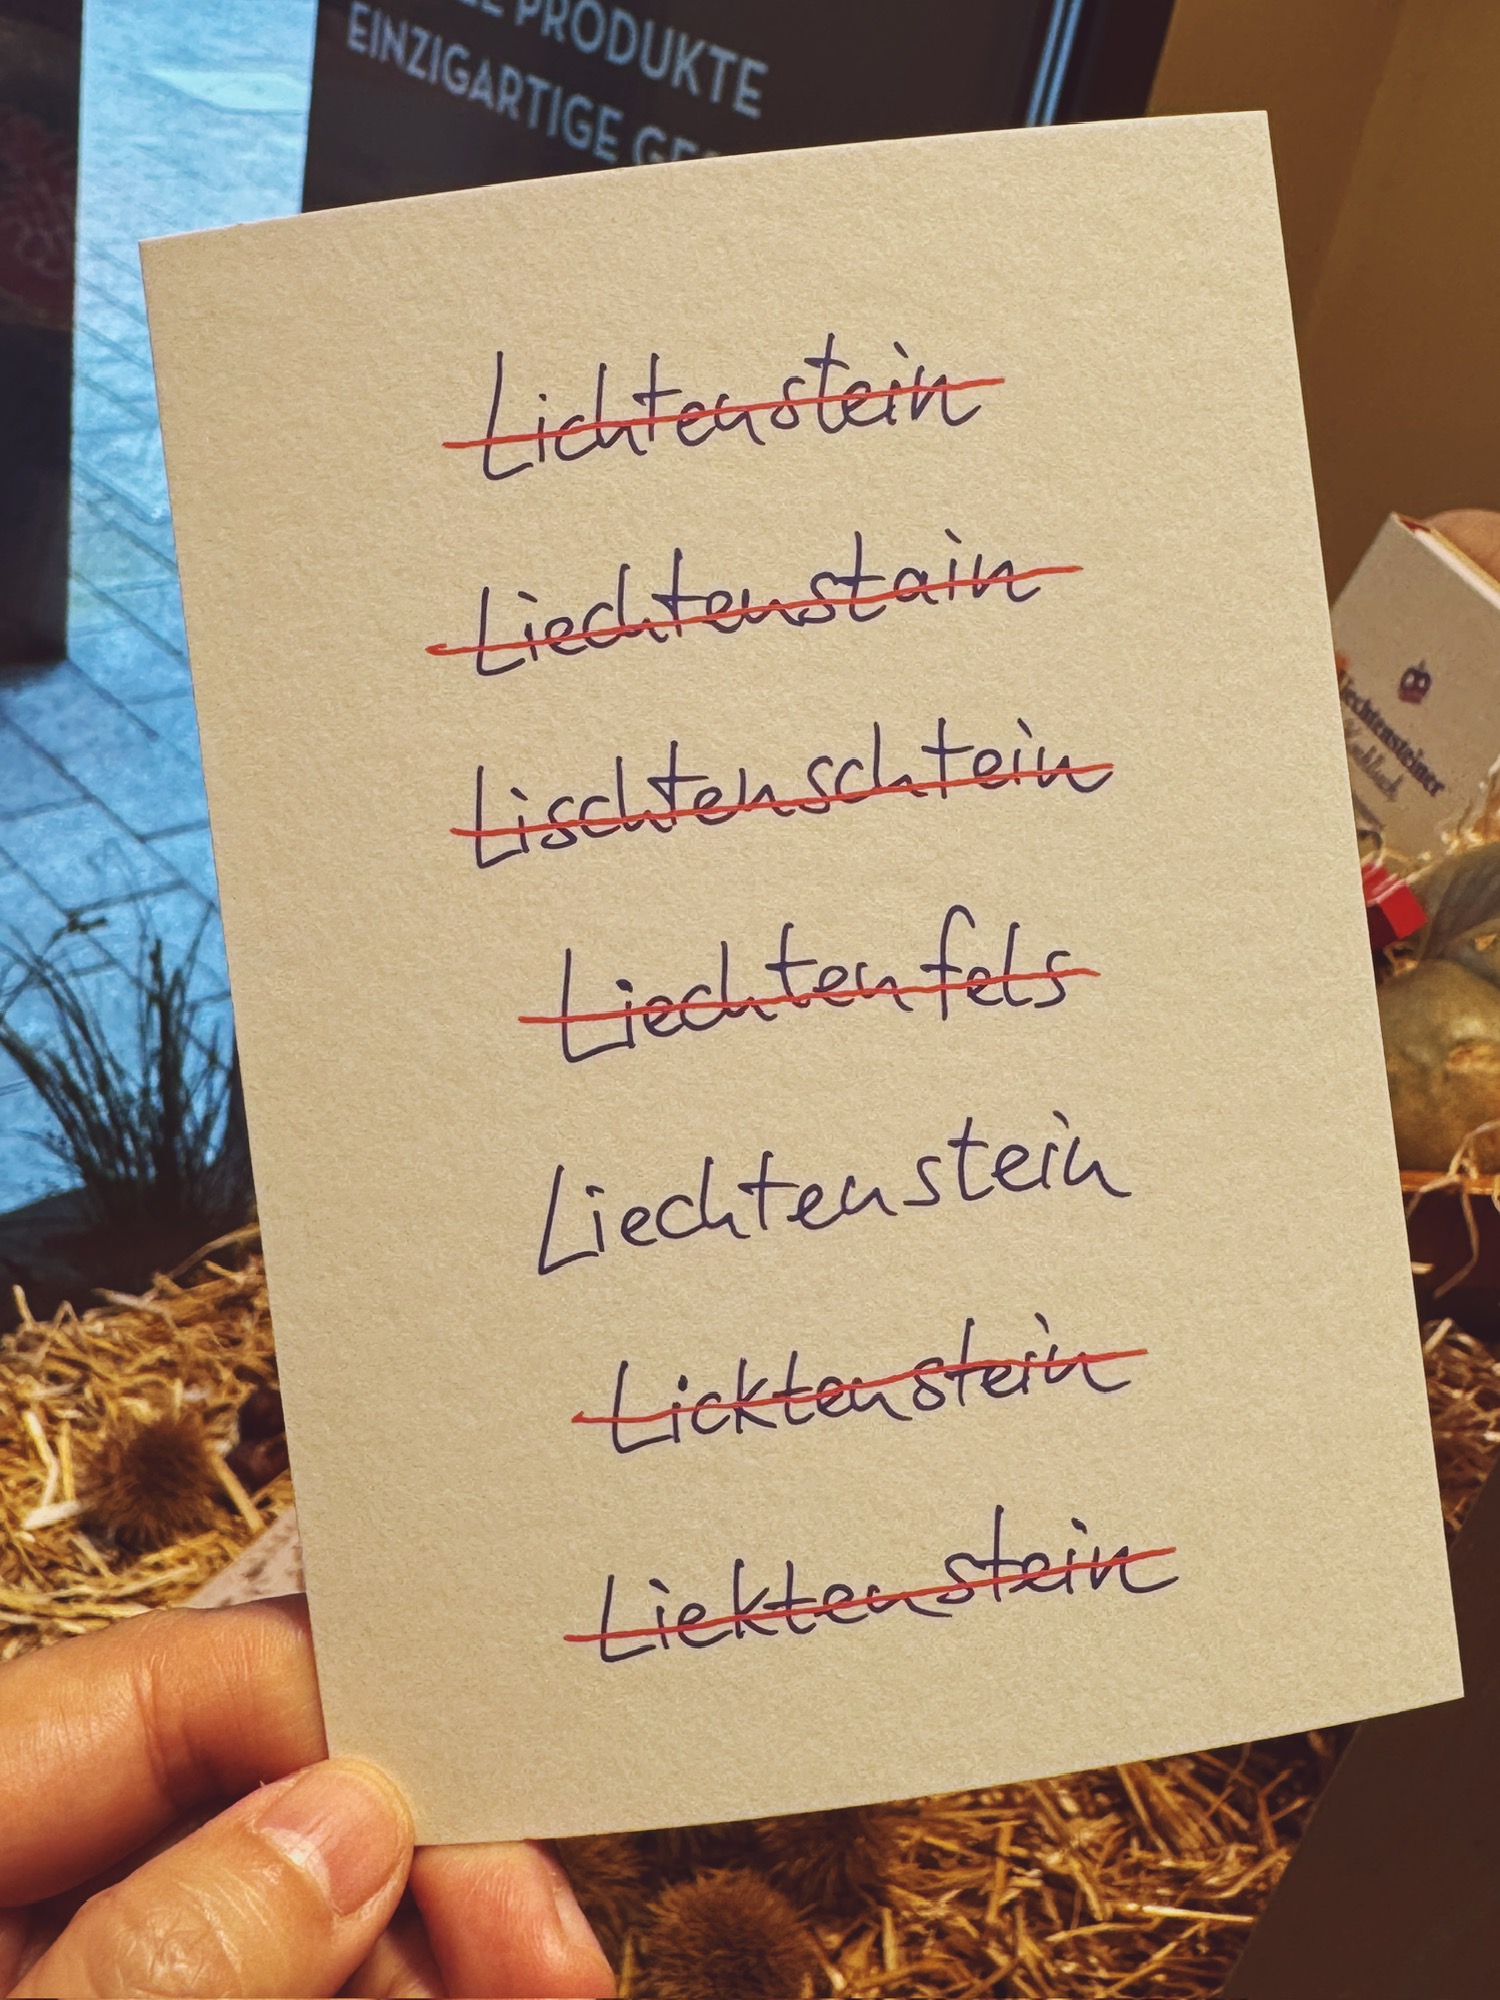 PRODUKTE
EINZIGARTIGE
Lichtenstein
Liechtenstain
Lischtenschtein
Liechtenfels
Liechtenstein
Licktenstein
Liektenstein
Liechtensteiner